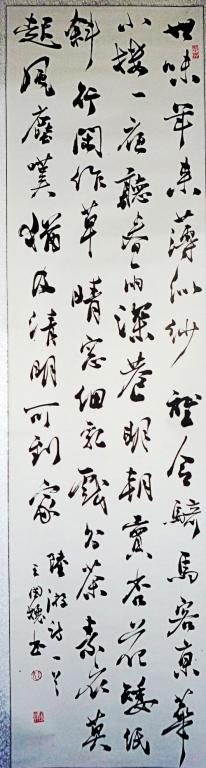 世味年来薄似纱 谁令骑马客京华
小楼一夜听春雨 深巷明朝卖杏花 矮纸
斜行闲作草 晴窗细乳戏分茶 素衣莫
起风尘叹 犹及清明可到家
陆游诗一首